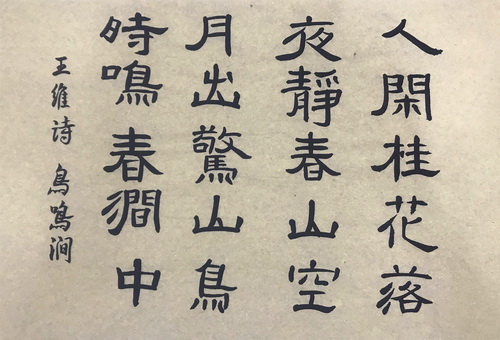 人閑桂花落
夜靜春山空
月出驚山鳥
時鳴春澗中
王维诗 鸟鸣涧